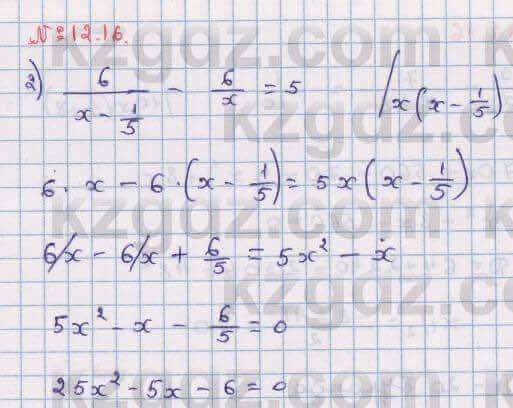 № 12.16.
2) 6/(x - 1/5) - 6/x = 5 / x(x - 1/5)
6 · x - 6 · (x - 1/5) = 5x(x - 1/5)
6x - 6x + 6/5 = 5x² - x
5x² - x - 6/5 = 0
25x² - 5x - 6 = 0
kzgdz.com